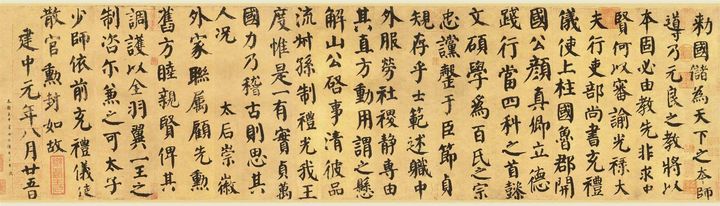 勅國儲為天下之本師
導乃元良之教將以
本固必由教先非求忠
賢何以審諭光祿大
夫行吏部尚書充禮
儀使上柱國魯郡開
國公顏真卿立德
踐行當四科之首懿
文碩學為百氏之宗
忠讜罄于臣節貞
規存乎士範述職中
外服勞社稷靜專由
其直方動用謂之懸
解山公啓事清彼品
流叔孫制禮光我王
度惟是一有實貞萬
國力乃稽古則思其
人况 太后崇徽
外家聯屬顧先勳
舊方睦親賢俾其
調護以全羽翼一王之
制咨尒兼之可太子
少師依前充禮儀使
散官勳封如故
建中元年八月廿五日